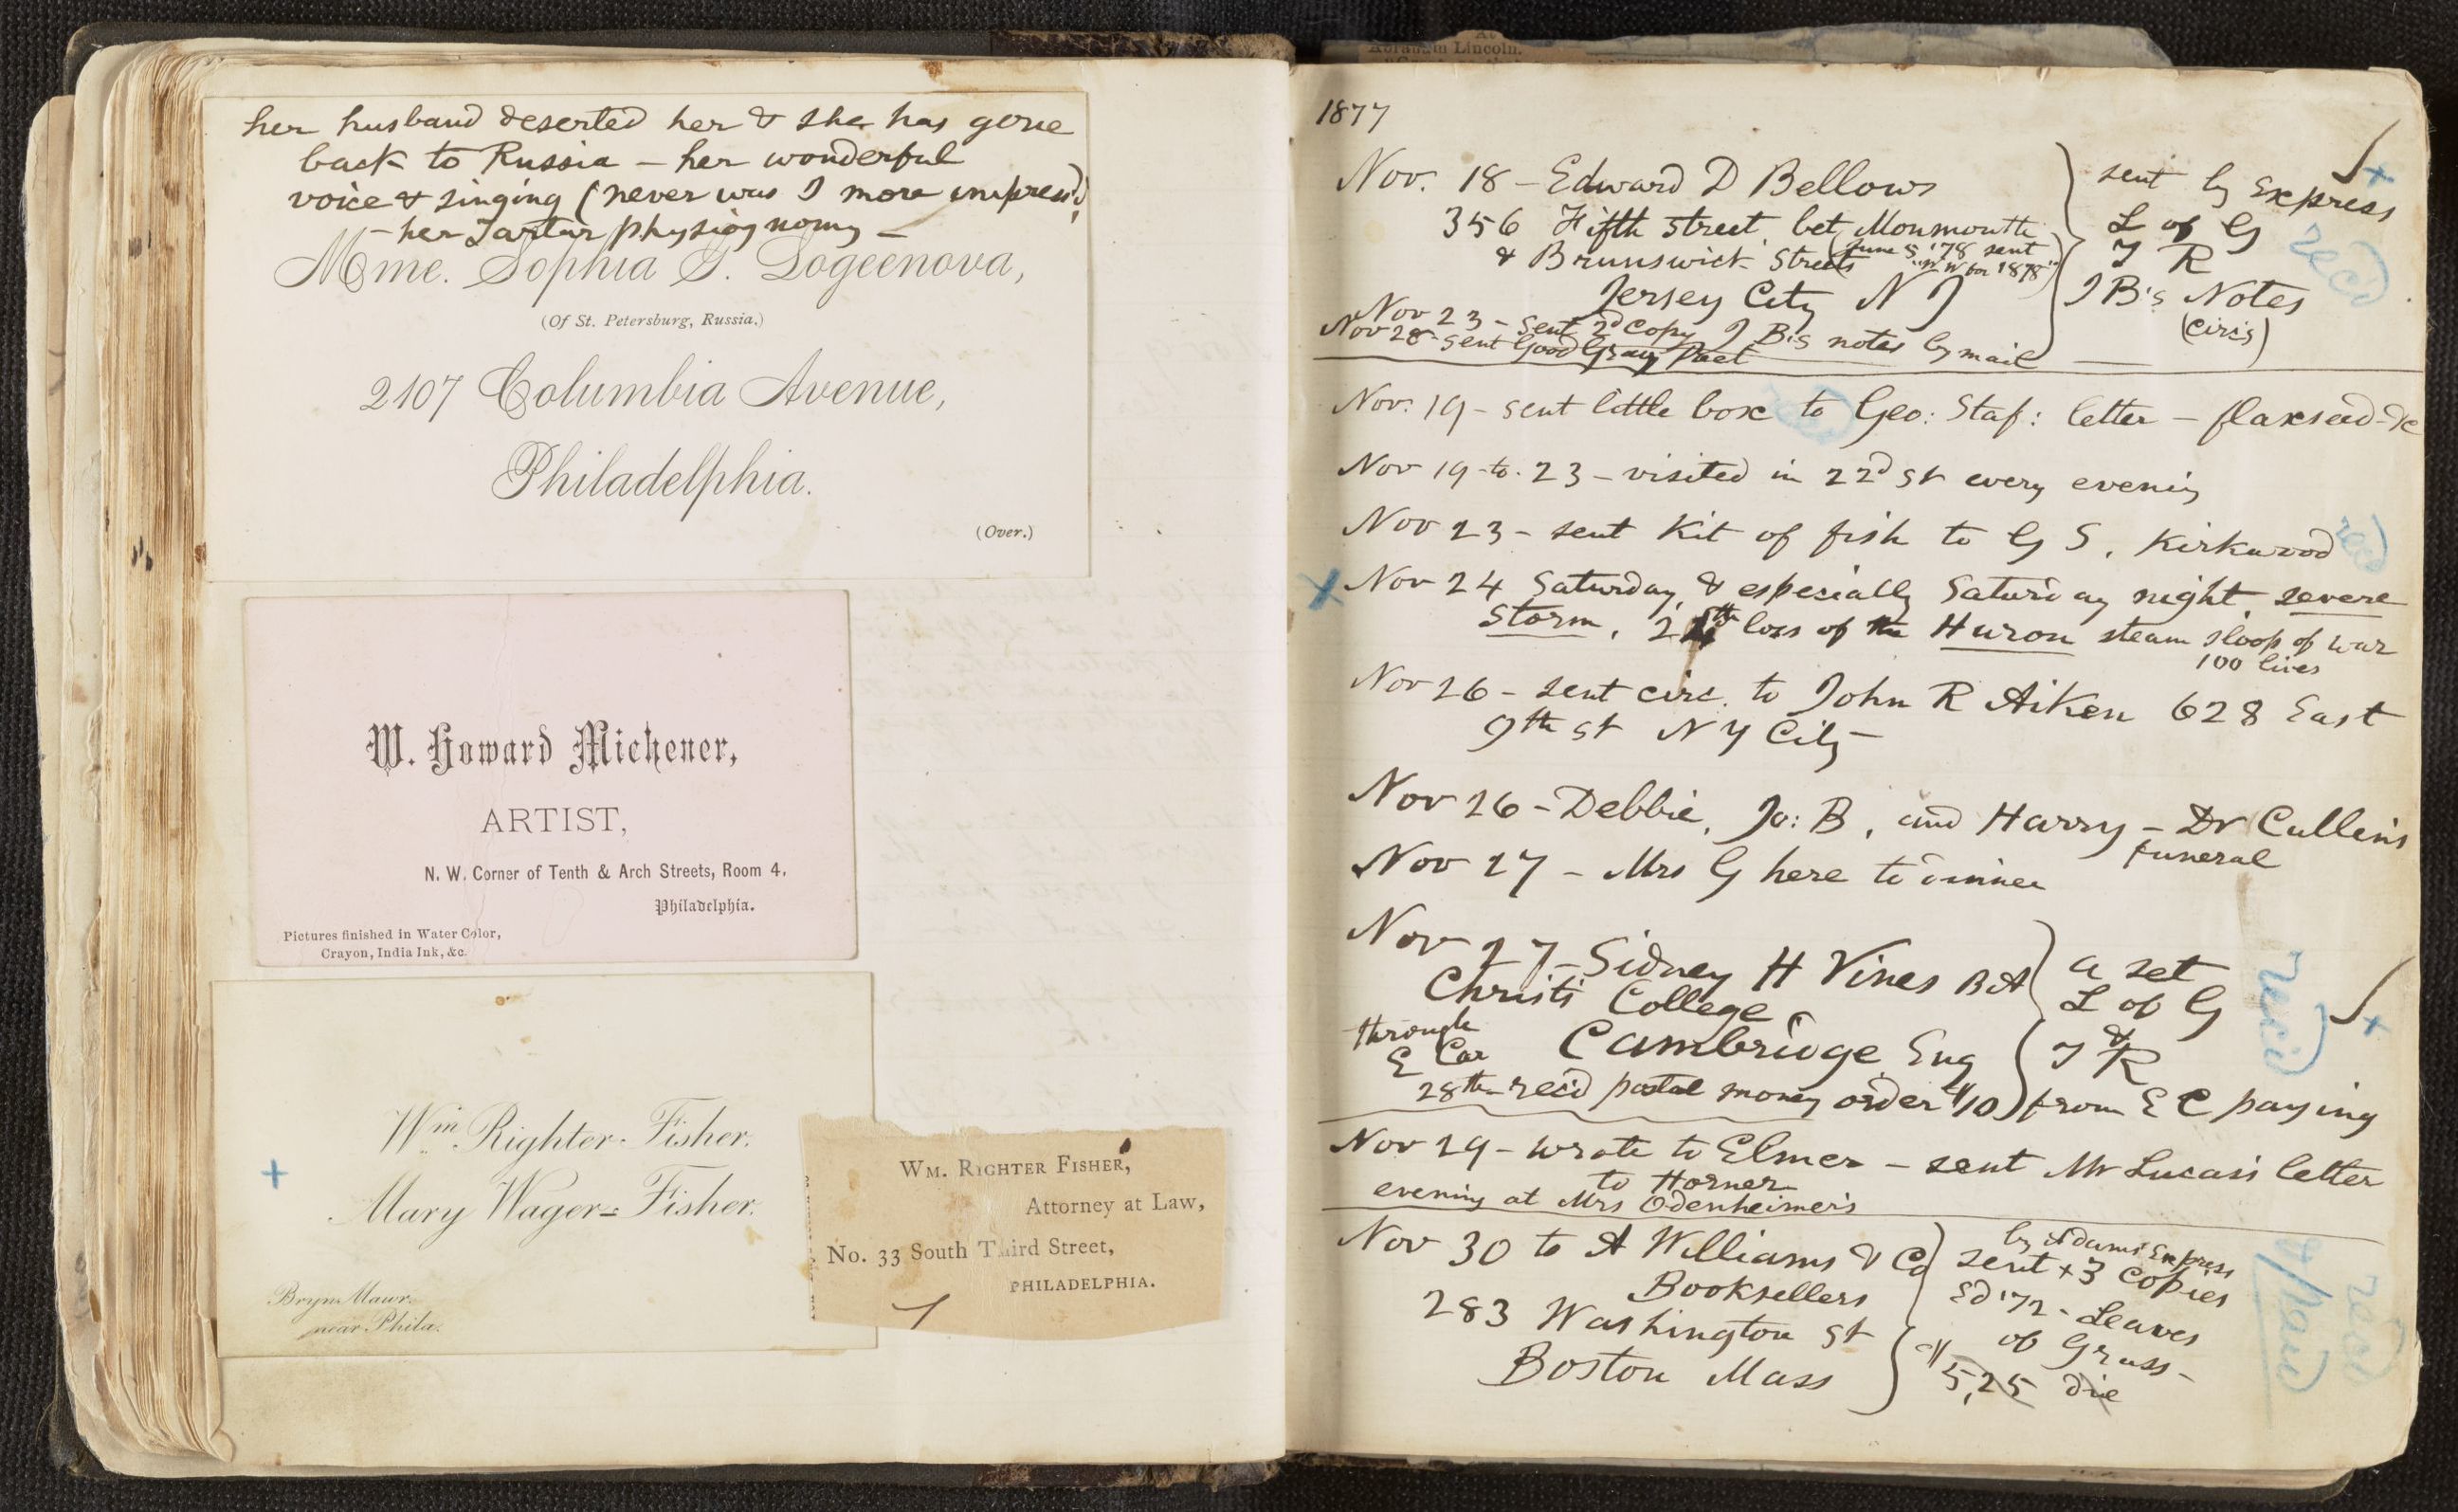 her husband deserted her & she has gone
back to Russia – her wonderful
voice & singing (never was I more impress'd)
– her Tartar physiognomy –
Mme. Sophia S. Dogeenova,
(Of St. Petersburg, Russia.)
2107 Columbia Avenue,
Philadelphia.
(Over.)
W. Howard Michener,
ARTIST,
N. W. Corner of Tenth & Arch Streets, Room 4,
Philadelphia.
Pictures finished in Water Color,
Crayon, India Ink, &c.
Wm Righter-Fisher.
Mary Wager=Fisher.
Bryn Mawr.
near Phila.
WM. RIGHTER FISHER,
Attorney at Law,
No. 33 South Third Street,
PHILADELPHIA.
Abraham Lincoln.
1877
Nov. 18 – Edward D Bellows
356 Fifth street bet Monmouth
& Brunswick Streets
(June 5 '78 sent
"W W for 1878")
Jersey City N J
Nov 23 – sent 2d copy J B's notes by mail
Nov 28 – sent Good Gray Poet
sent by Express
L of G
T R
J B's Notes
(circ's)
rec'd
Nov. 19 – sent little box to Geo: Staf: letter – flaxseed – &c
Nov 19 to 23 – visited in 22d st every evening
Nov 23 – sent Kit of fish to G S, Kirkwood
rec'd
Nov 24 Saturday, & especially Saturday night, severe
storm, 24th loss of the Huron steam sloop of war
100 lives
Nov 26 – sent circ. to John R Aiken 628 East
9th st N Y City –
Nov 26 – Debbie, Jo: B, and Harry – Dr Cullen's
funeral
Nov 27 – Mrs G here to dinner
Nov 27 – Sidney H Vines BA
Christ's College
through
E Car
Cambridge Eng
a set
L of G
&
T R
rec'd
28th rec'd postal money order $10 from E C paying
Nov 29 – wrote to Elmer – sent Mr Lucas's letter
to Horner
evening at Mrs Odenheimer's
Nov 30 to A Williams & Co
Booksellers
283 Washington st
Boston Mass
by Adams Express
sent + 3 copies
Ed '72 – Leaves
of Grass –
$5,25 due
rec'd
& paid